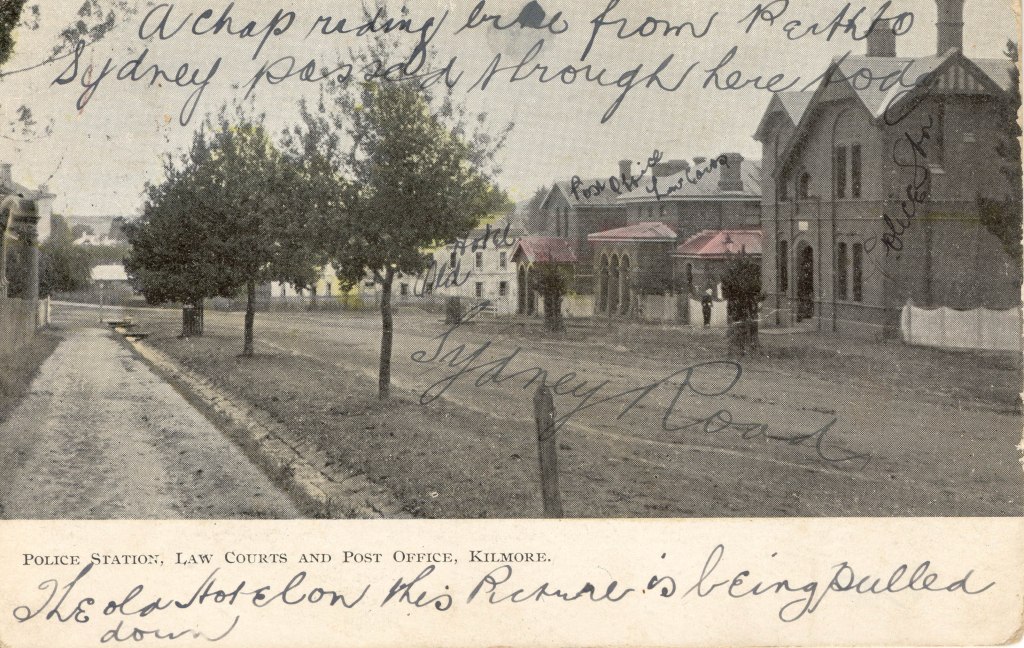 A chap riding bike from Perth to
Sydney passed through here today
Post Office
Law Courts
Police Stn
Hotel
Old
Sydney Road
POLICE STATION, LAW COURTS AND POST OFFICE, KILMORE.
The old Hotel on this Picture is being pulled
down